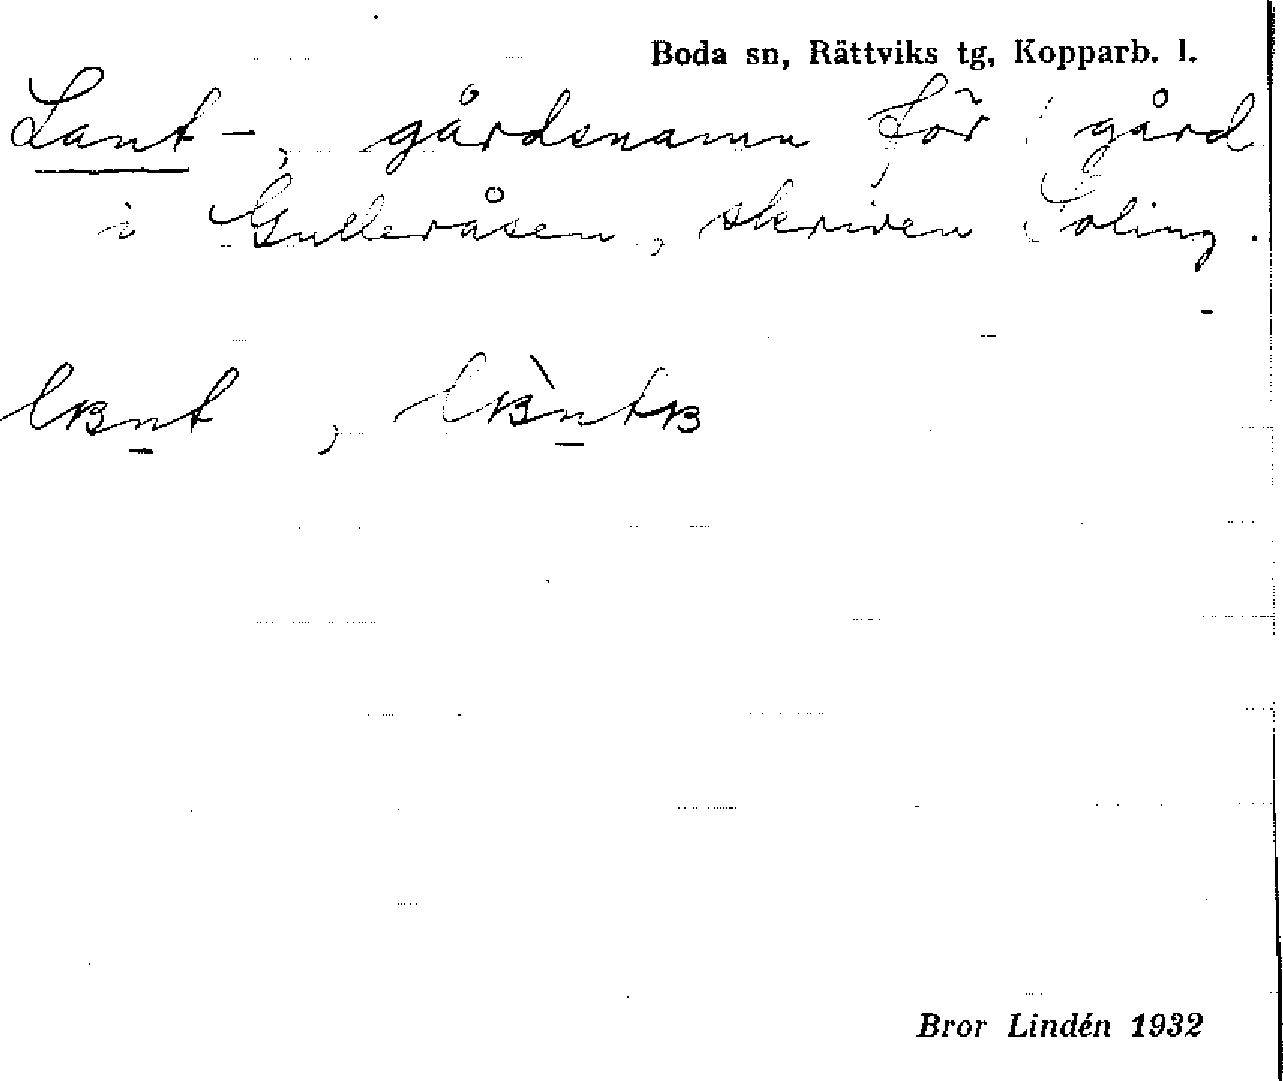 Boda sn, Rättviks tg, Kopparb. l.
Lant-, gårdsnamn för gård
i Gulleråsen, skriven Soling.
lʙn̲t, lʙ̀n̲tʙ
Bror Lindén 1932